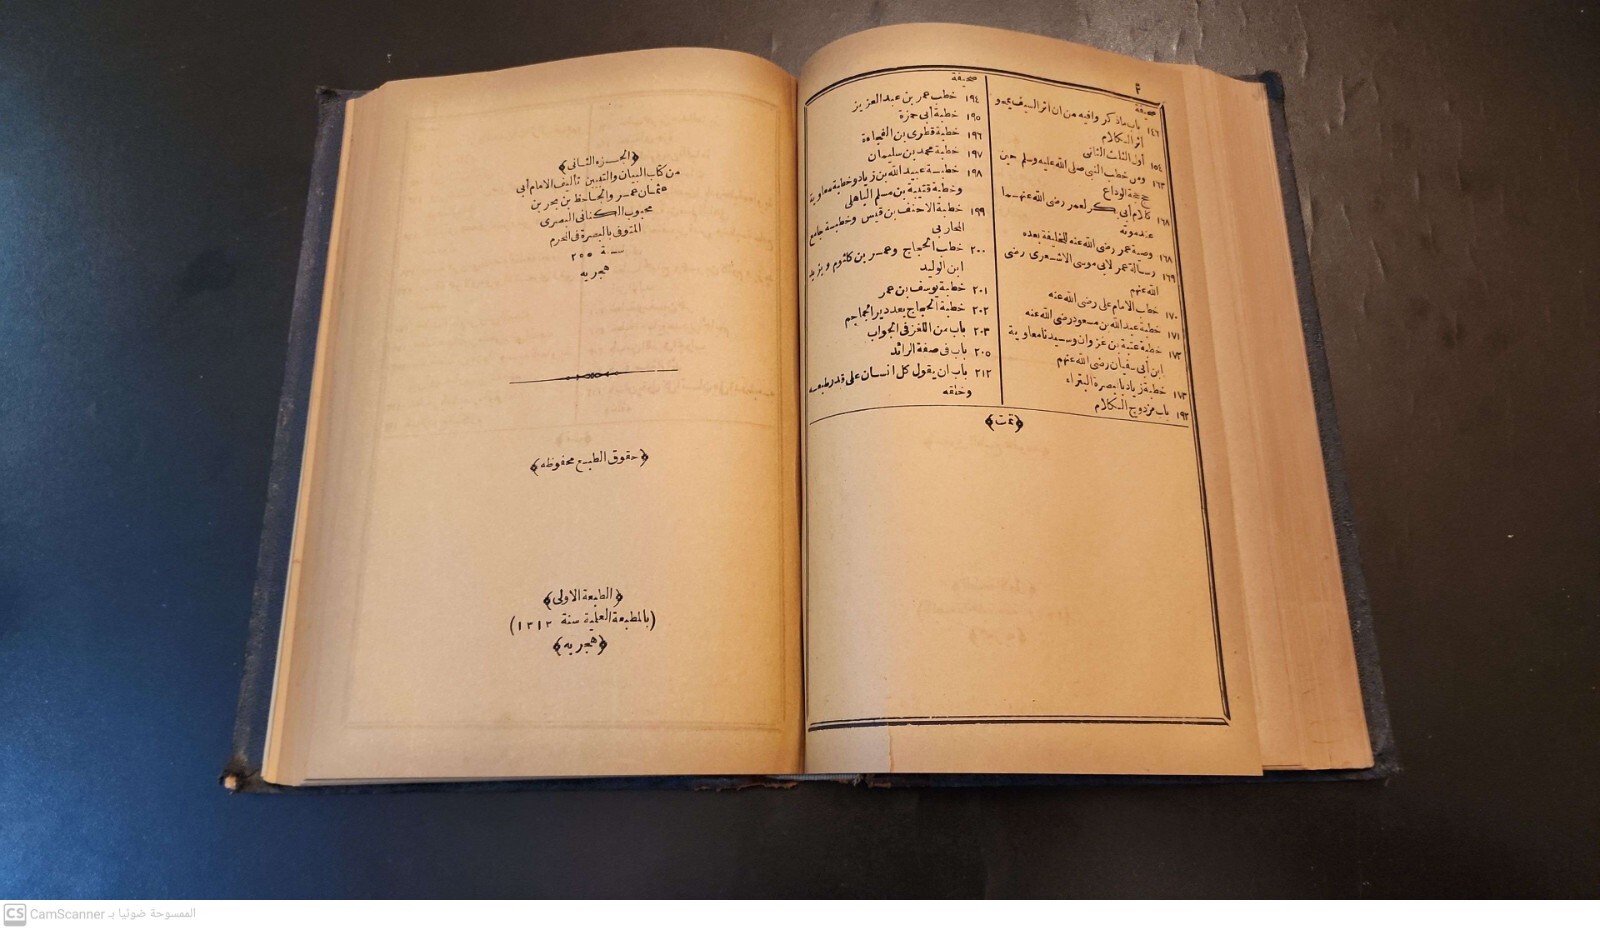 ٢
صحيفة
١٤٦ باب ماذكروا فيه من ان اثر السيف يمحو
اثر الكلام
١٥٤ أول الثلث الثانى
١٦٣ ومن خطب النبى صلى الله عليه وسلم حين
حج حجة الوداع
١٦٨ كلام أبى بكر لعمر رضى الله عنهما
عند موته
١٦٨ وصية عمر رضى الله عنه للخليفة بعده
١٦٩ رسالة عمر لابى موسى الاشعرى رضى
الله عنهم
١٧٠ خطاب الامام على رضى الله عنه
١٧١ خطبة عبد الله بن مسعود رضى الله عنه
١٧٣ خطبة عتبة بن غزوان وسيدنا معاوية
ابن أبى سفيان رضى الله عنهم
١٧٣ خطبة زياد بالبصرة البتراء
١٩٢ باب مزدوج الكلام
صحيفة
١٩٤ خطب عمر بن عبد العزيز
١٩٥ خطبة أبى حمزة
١٩٦ خطبة قطرى بن الفجاءة
١٩٧ خطبة محمد بن سليمان
١٩٨ خطبة عبيد الله بن زياد وخطبة معاوية
وخطبة قتيبة بن مسلم الباهلى
١٩٩ خطبة الاحنف بن قيس وخطبة جامع
المحاربى
٢٠٠ خطب الحجاج وعمرو بن كلثوم ويزيد
ابن الوليد
٢٠١ خطبة يوسف بن عمر
٢٠٢ خطبة الحجاج بعد دير الجماجم
٢٠٣ باب من اللغز فى الجواب
٢٠٥ باب فى صفة الرائد
٢١٢ باب ان يقول كل انسان على قدر طبعه
وخلقه
﴿تمت﴾
﴿الجزء الثانى﴾
من كتاب البيان والتبيين تأليف الامام أبى
عثمان عمرو الجاحظ بن بحر بن
محبوب الكنانى البصرى
المتوفى بالبصرة فى المحرم
سنة ٢٥٥
هجريه
﴿حقوق الطبع محفوظه﴾
﴿الطبعة الاولى﴾
(بالمطبعة العلمية سنة ١٣١٣)
﴿هجريه﴾
CS CamScanner الممسوحة ضوئيا بـ